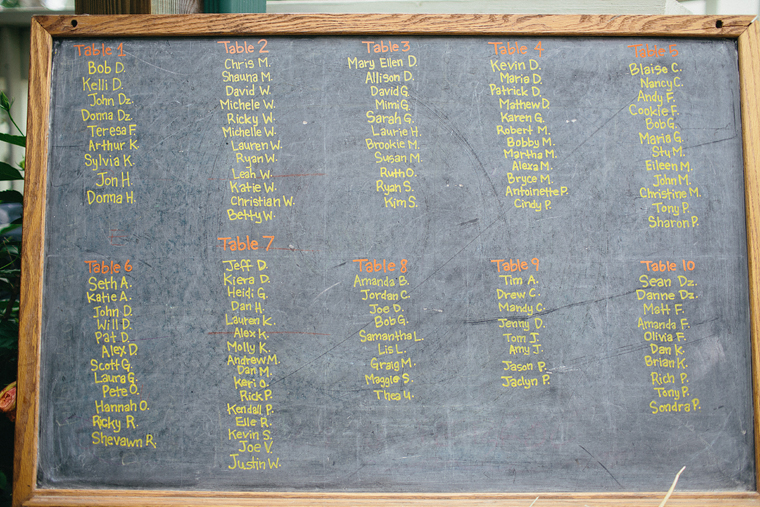 Table 1
Bob D.
Kelli D.
John Dz.
Donna Dz.
Teresa F.
Arthur K.
Sylvia K.
Jon H.
Donna H.
Table 2
Chris M.
Shauna M.
David W.
Michele W.
Ricky W.
Michelle W.
Lauren W.
Ryan W.
Leah W.
Katie W.
Christian W.
Betty W.
Table 3
Mary Ellen D.
Allison D.
David G.
Mimi G.
Sarah G.
Laurie H.
Brookie M.
Susan M.
Ruth O.
Ryan S.
Kim S.
Table 4
Kevin D.
Maria D.
Patrick D.
Mathew D.
Karen G.
Robert M.
Bobby M.
Martha M.
Alexa M.
Bryce M.
Antoinette P.
Cindy P.
Table 5
Blaise C.
Nancy C.
Andy F.
Cookie F.
Bob G.
Maria G.
Stu M.
Eileen M.
John M.
Christine M.
Tony P.
Sharon P.
Table 6
Seth A.
Katie A.
John D.
Will D.
Pat D.
Alex D.
Scott G.
Laura G.
Pete O.
Hannah O.
Ricky R.
Shevawn R.
Table 7
Jeff D.
Kiera D.
Heidi G.
Dan H.
Lauren K.
Alex K.
Molly K.
Andrew M.
Dan M.
Keri O.
Rick P.
Kendall P.
Elle R.
Kevin S.
Joe V.
Justin W.
Table 8
Amanda B.
Jordan C.
Joe D.
Bob G.
Samantha L.
Lis L.
Graig M.
Maggie S.
Thea U.
Table 9
Tim A.
Drew C.
Mandy C.
Jenny D.
Tom J.
Amy J.
Jason P.
Jaclyn P.
Table 10
Sean Dz.
Danne Dz.
Matt F.
Amanda F.
Olivia F.
Dan K.
Brian K.
Rich P.
Tony P.
Sondra P.